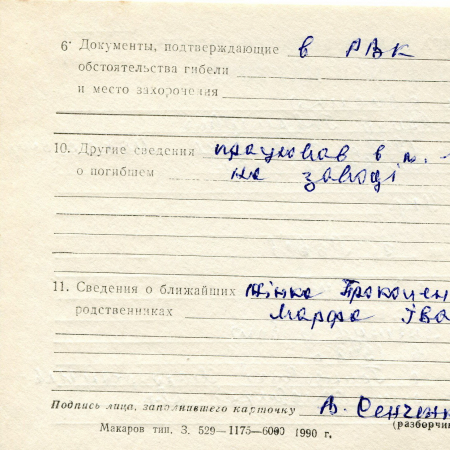 6. Документы, подтверждающие в РВК
обстоятельства гибели
и место захоронения
10. Другие сведения працював в м.
о погибшем на заводі
11. Сведения о ближайших жінка Прокопен
родственниках Марфа Іва
Подпись лица, заполнившего карточку В. Сенчен
(разборчи
Макаров тип. З. 529—1175—6000 1990 г.